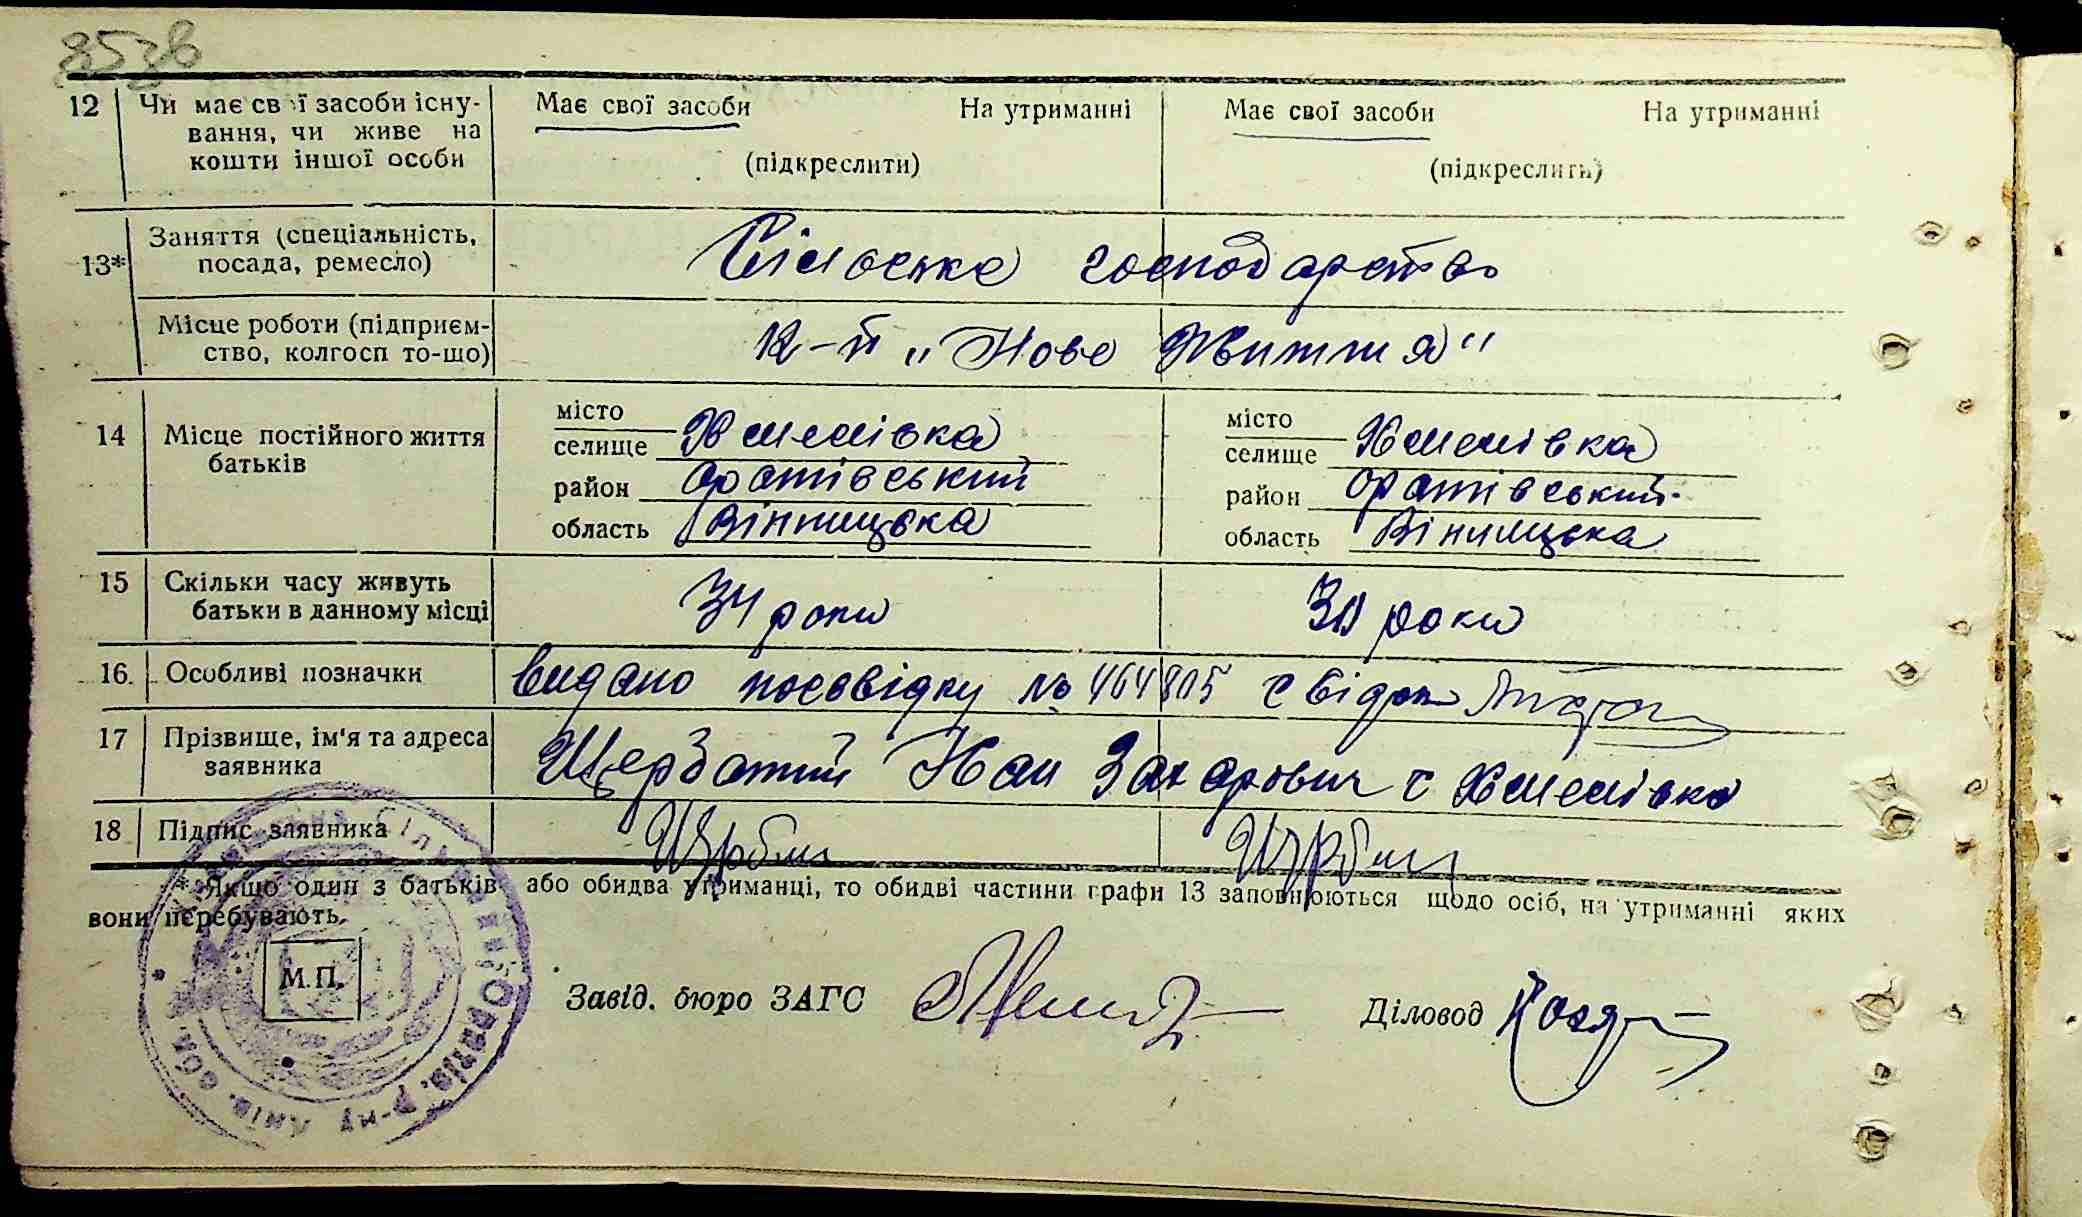 12 Чи має свої засоби існу- Має свої засоби На утриманні Має свої засоби На утриманні
вання, чи живе на
кошти іншої особи (підкреслити) (підкреслити)
13* Заняття (спеціальність, Сільське господарство
посада, ремесло)
Місце роботи (підприєм- к-п „Нове Життя"
ство, колгосп то-що)
14 Місце постійного життя батьків
місто місто
селище Хмелівка селище Хмелівка
район Оратівський район Оратівський
область Вінницька область Вінницька
15 Скільки часу живуть 34 роки роки
батьки в данному місці
16. Особливі позначки видано посвідку № 464805
17 Прізвище, ім'я та адреса Щербатий Іван Захарович с Хмелівка
заявника
18 Підпис заявника
* Якщо один з батьків або обидва утриманці, то обидві частини графи 13 заповнюються щодо осіб, на утриманні яких
вони перебувають.
М.П. Завід. бюро ЗАГС Діловод